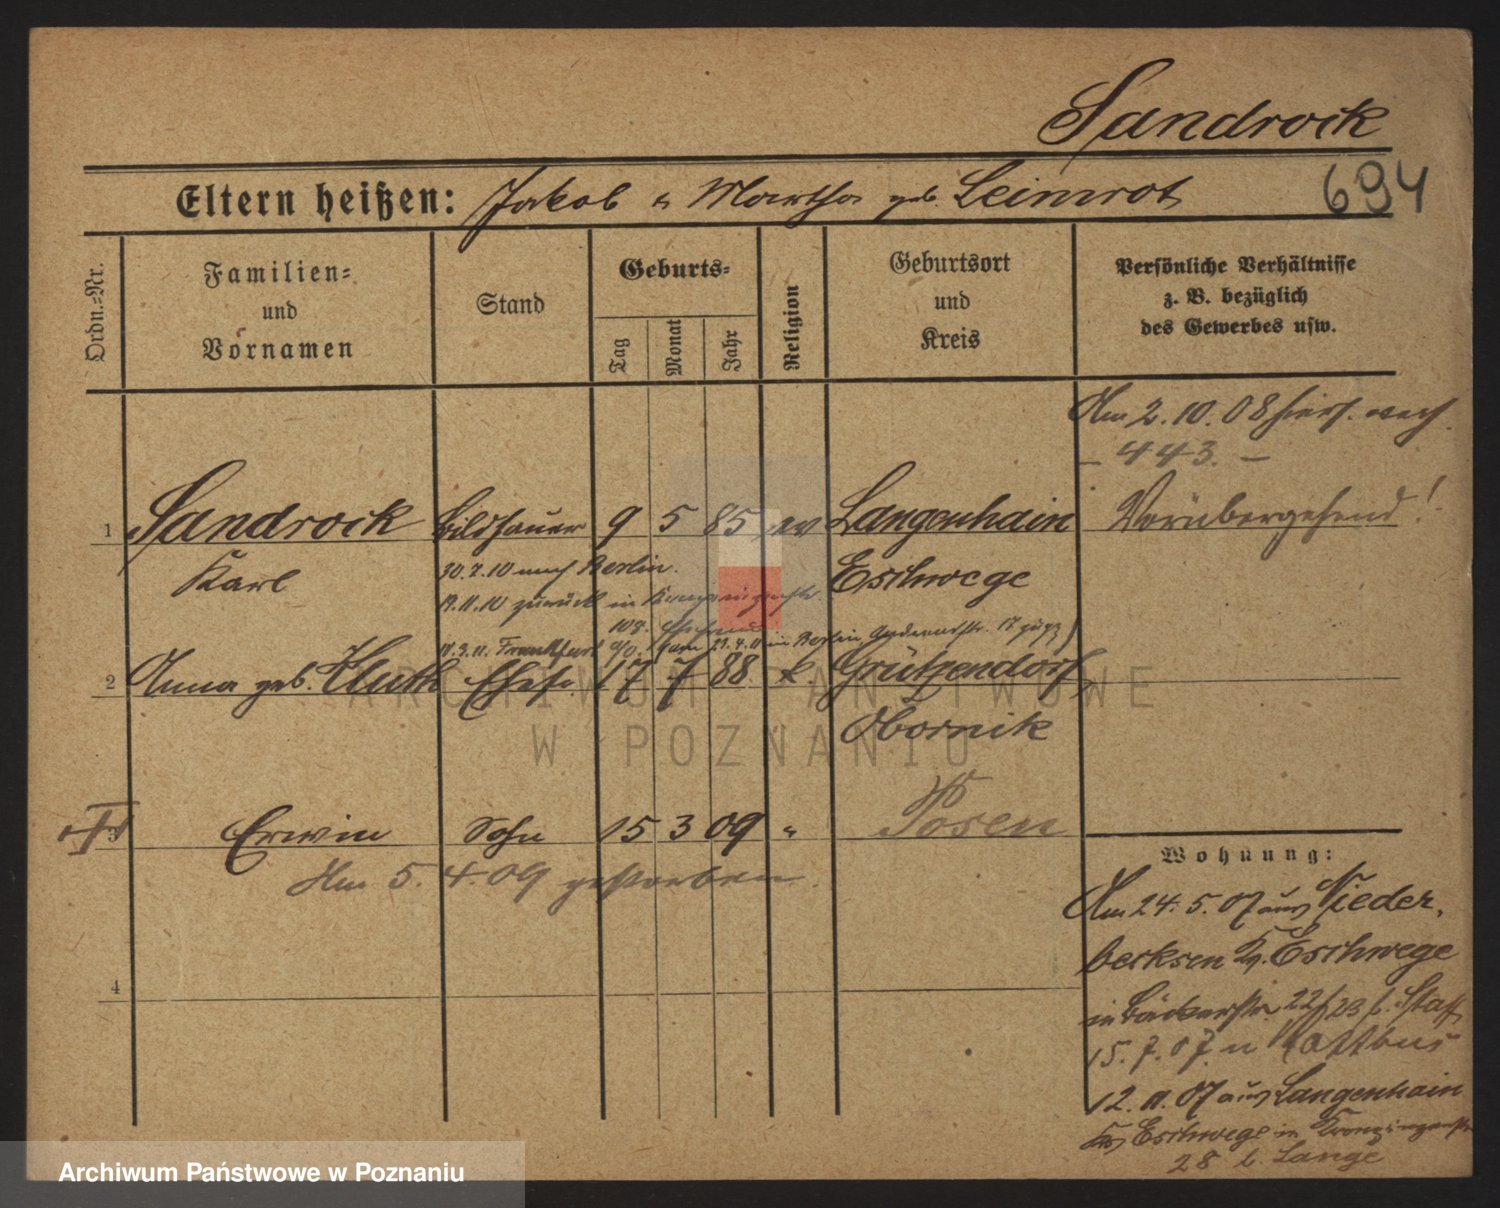 Sandrock
694
Eltern heißen: Jakob u Martha geb. Leimrot
Ordn.=Nr.
Familien=
und
Vornamen
Stand
Geburts=
Tag
Monat
Jahr
Religion
Geburtsort
und
Kreis
Persönliche Verhältnisse
z. B. bezüglich
des Gewerbes usw.
Am 2.10.08 hierh. nach
- 443. -
1 Sandrock Bildhauer 9 5 85 ev Langenhain Vorübergehend!
Karl Eschwege
30.7.10 nach Berlin.
19.11.10 zurück in
11.3.11. Frankfurt a/O. in Berlin
2 Anna geb. Huth Ehefr. 17 7 88 k. Grützendorf
Obornik
3 Erwin Sohn 15 3 09 " Posen
Am 5.4.09 gestorben.
4
Wohnung:
Am 24.5.07 aus Nieder,
Kr. Eschwege
in Bäckerstr. 22/23 b.
15.7.07. n Kottbus
12.11.07 aus Langenhain
Krs Eschwege in Kronprinzenstr
28 b. Lange
ARCHIWUM PAŃSTWOWE
W POZNANIU
Archiwum Państwowe w Poznaniu